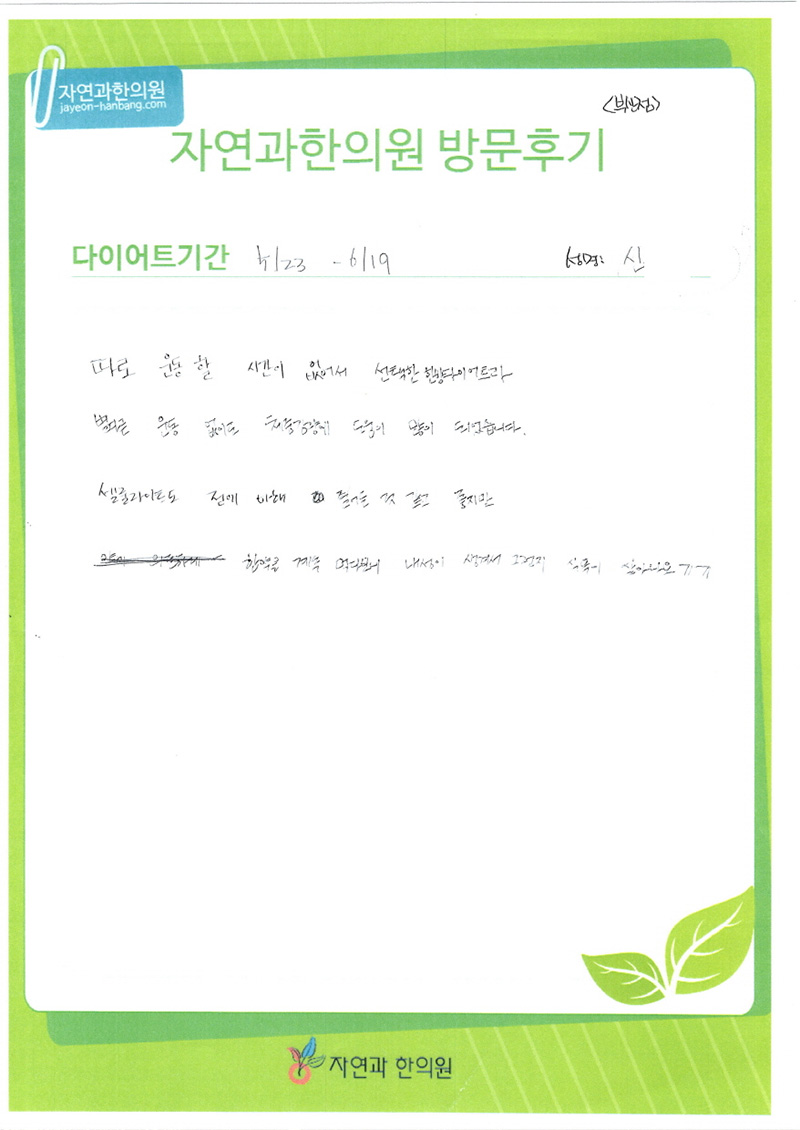 자연과한의원
jayeon-hanbang.com
자연과한의원 방문후기
다이어트기간 5/23 - 6/19 성명: 신
따로 운동할 시간이 없어서 선택한 한방다이어트라
별다른 운동 없이도 체중감량에 도움이 많이 되었습니다.
셀룰라이트도 전에 비해 줄어든 것 같고 좋지만
한약을 계속 먹다보니 내성이 생겨서 그런지 식욕이 살아나요 ㅠㅠ
자연과 한의원